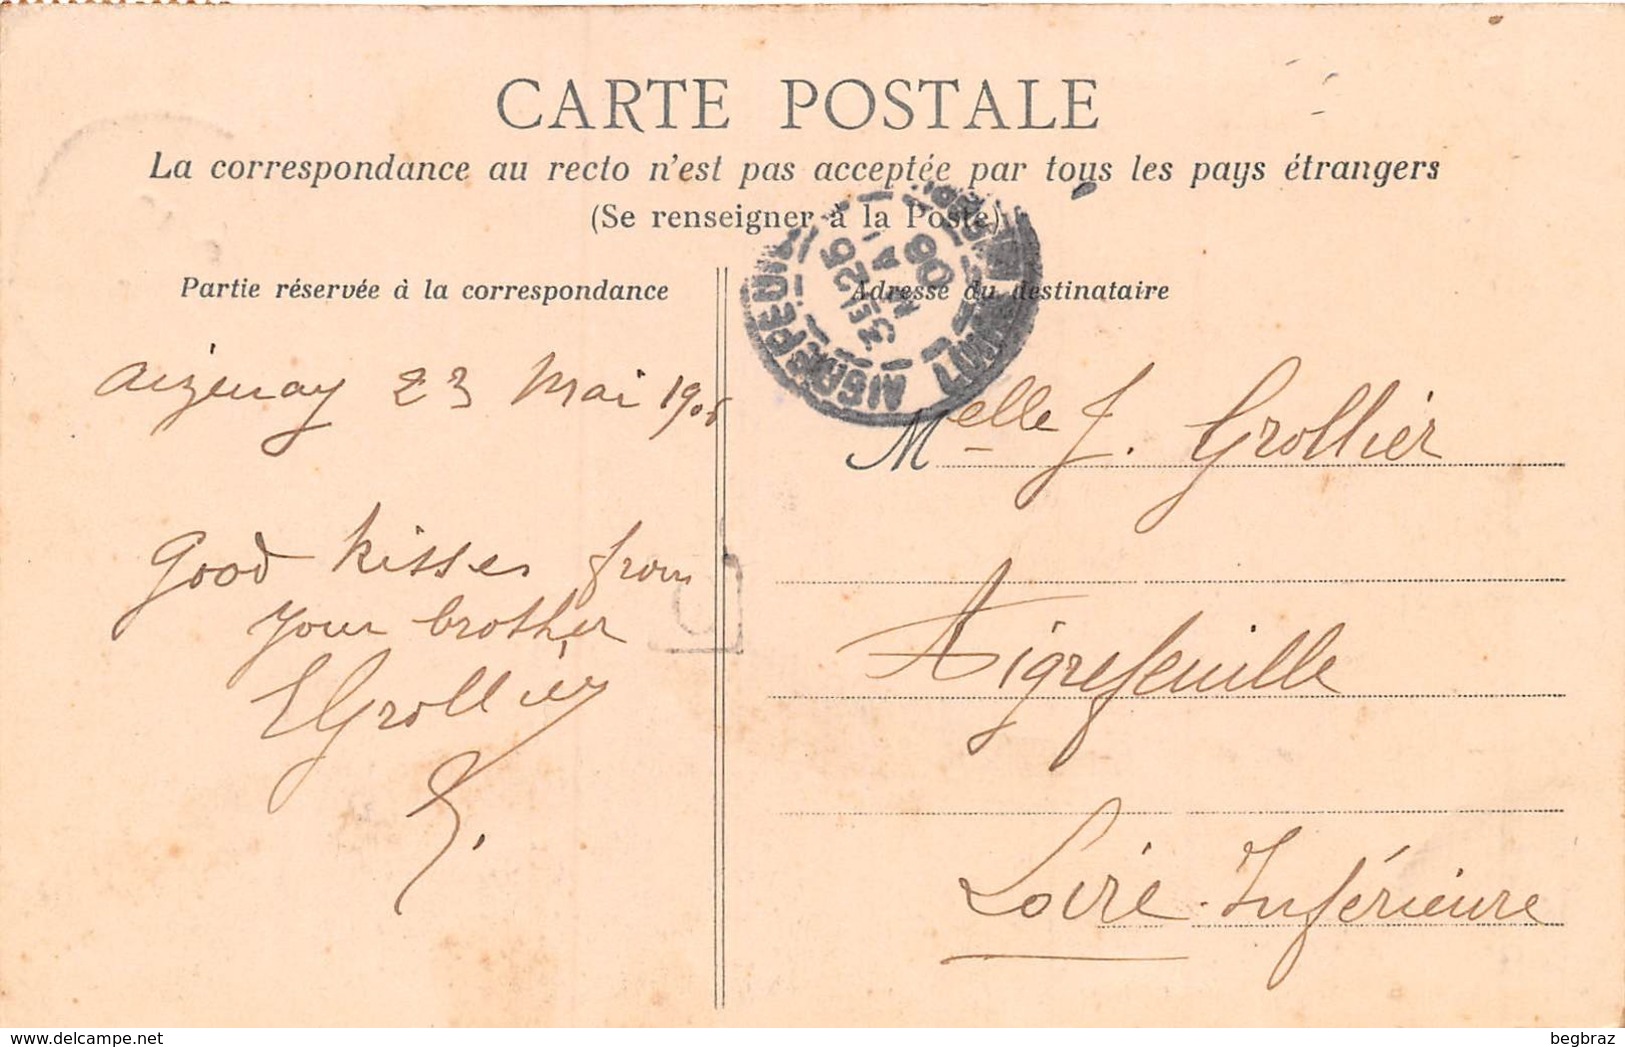 CARTE POSTALE
La correspondance au recto n'est pas acceptée par tous les pays étrangers
(Se renseigner à la Poste)
Partie réservée à la correspondance
Adresse du destinataire
Aizenay 23 Mai
Good kisses from
your brother
EGrollier
Melle J. Grollier
Aigrefeuille
Loire-Inférieure
AIGREFEUILLE
25
06
begbraz